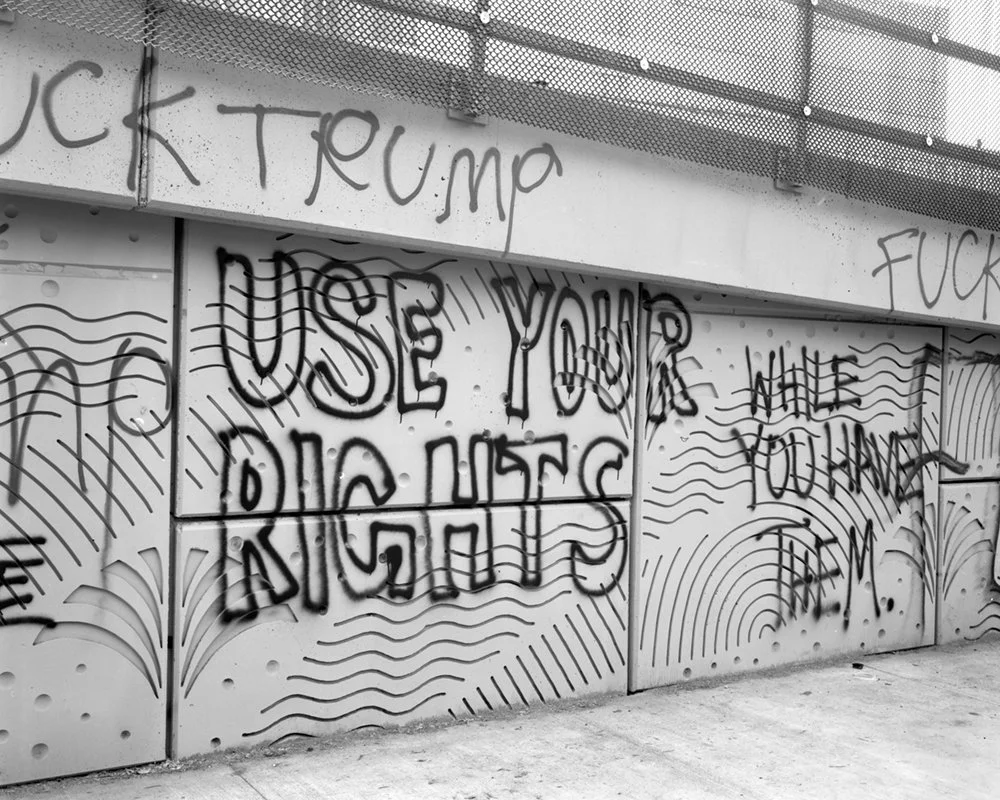 UCK TRUMP
FUCK
USE YOUR
RIGHTS
WHILE
YOU HAVE
THEM.